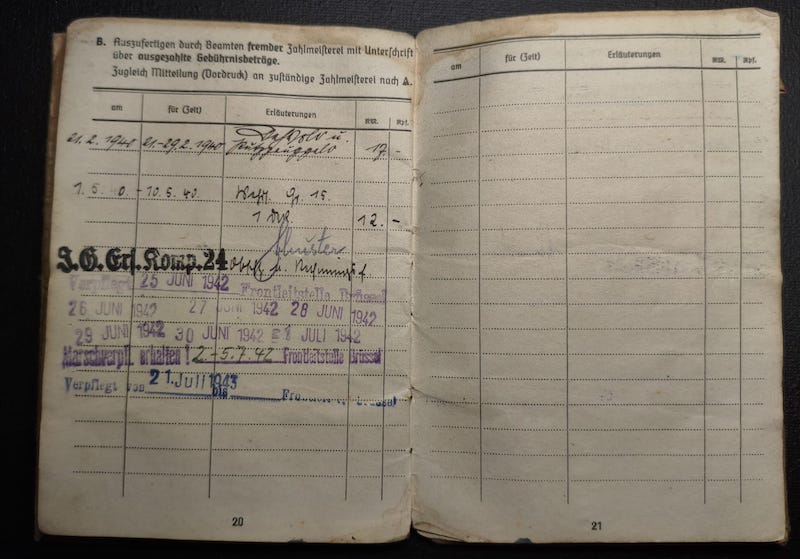 B. Auszufertigen durch Beamten fremder Zahlmeisterei mit Unterschrift
über ausgezahlte Gebührnisbeträge.
Zugleich Mitteilung (Vordruck) an zuständige Zahlmeisterei nach A.
am für (Zeit) Erläuterungen RM. Rpf.
21.2.1940 21.-29.2.1940
17 -
1.5.0. - 10.5.40. Wehrs. Gr. 15.
12. -
J.G. Ers. Komp. 24
Verpflegt 25 JUNI 1942 Frontleitstelle Brüssel
26 JUNI 1942 27 JUNI 1942 28 JUNI 1942
29 JUNI 1942 30 JUNI 1942 JULI 1942
Marschverpfl. erhalten 2.-5.7.42 Frontleitstelle Brüssel
Verpflegt von 21. Juli 1943 bis
20
am für (Zeit) Erläuterungen RM. Rpf.
21